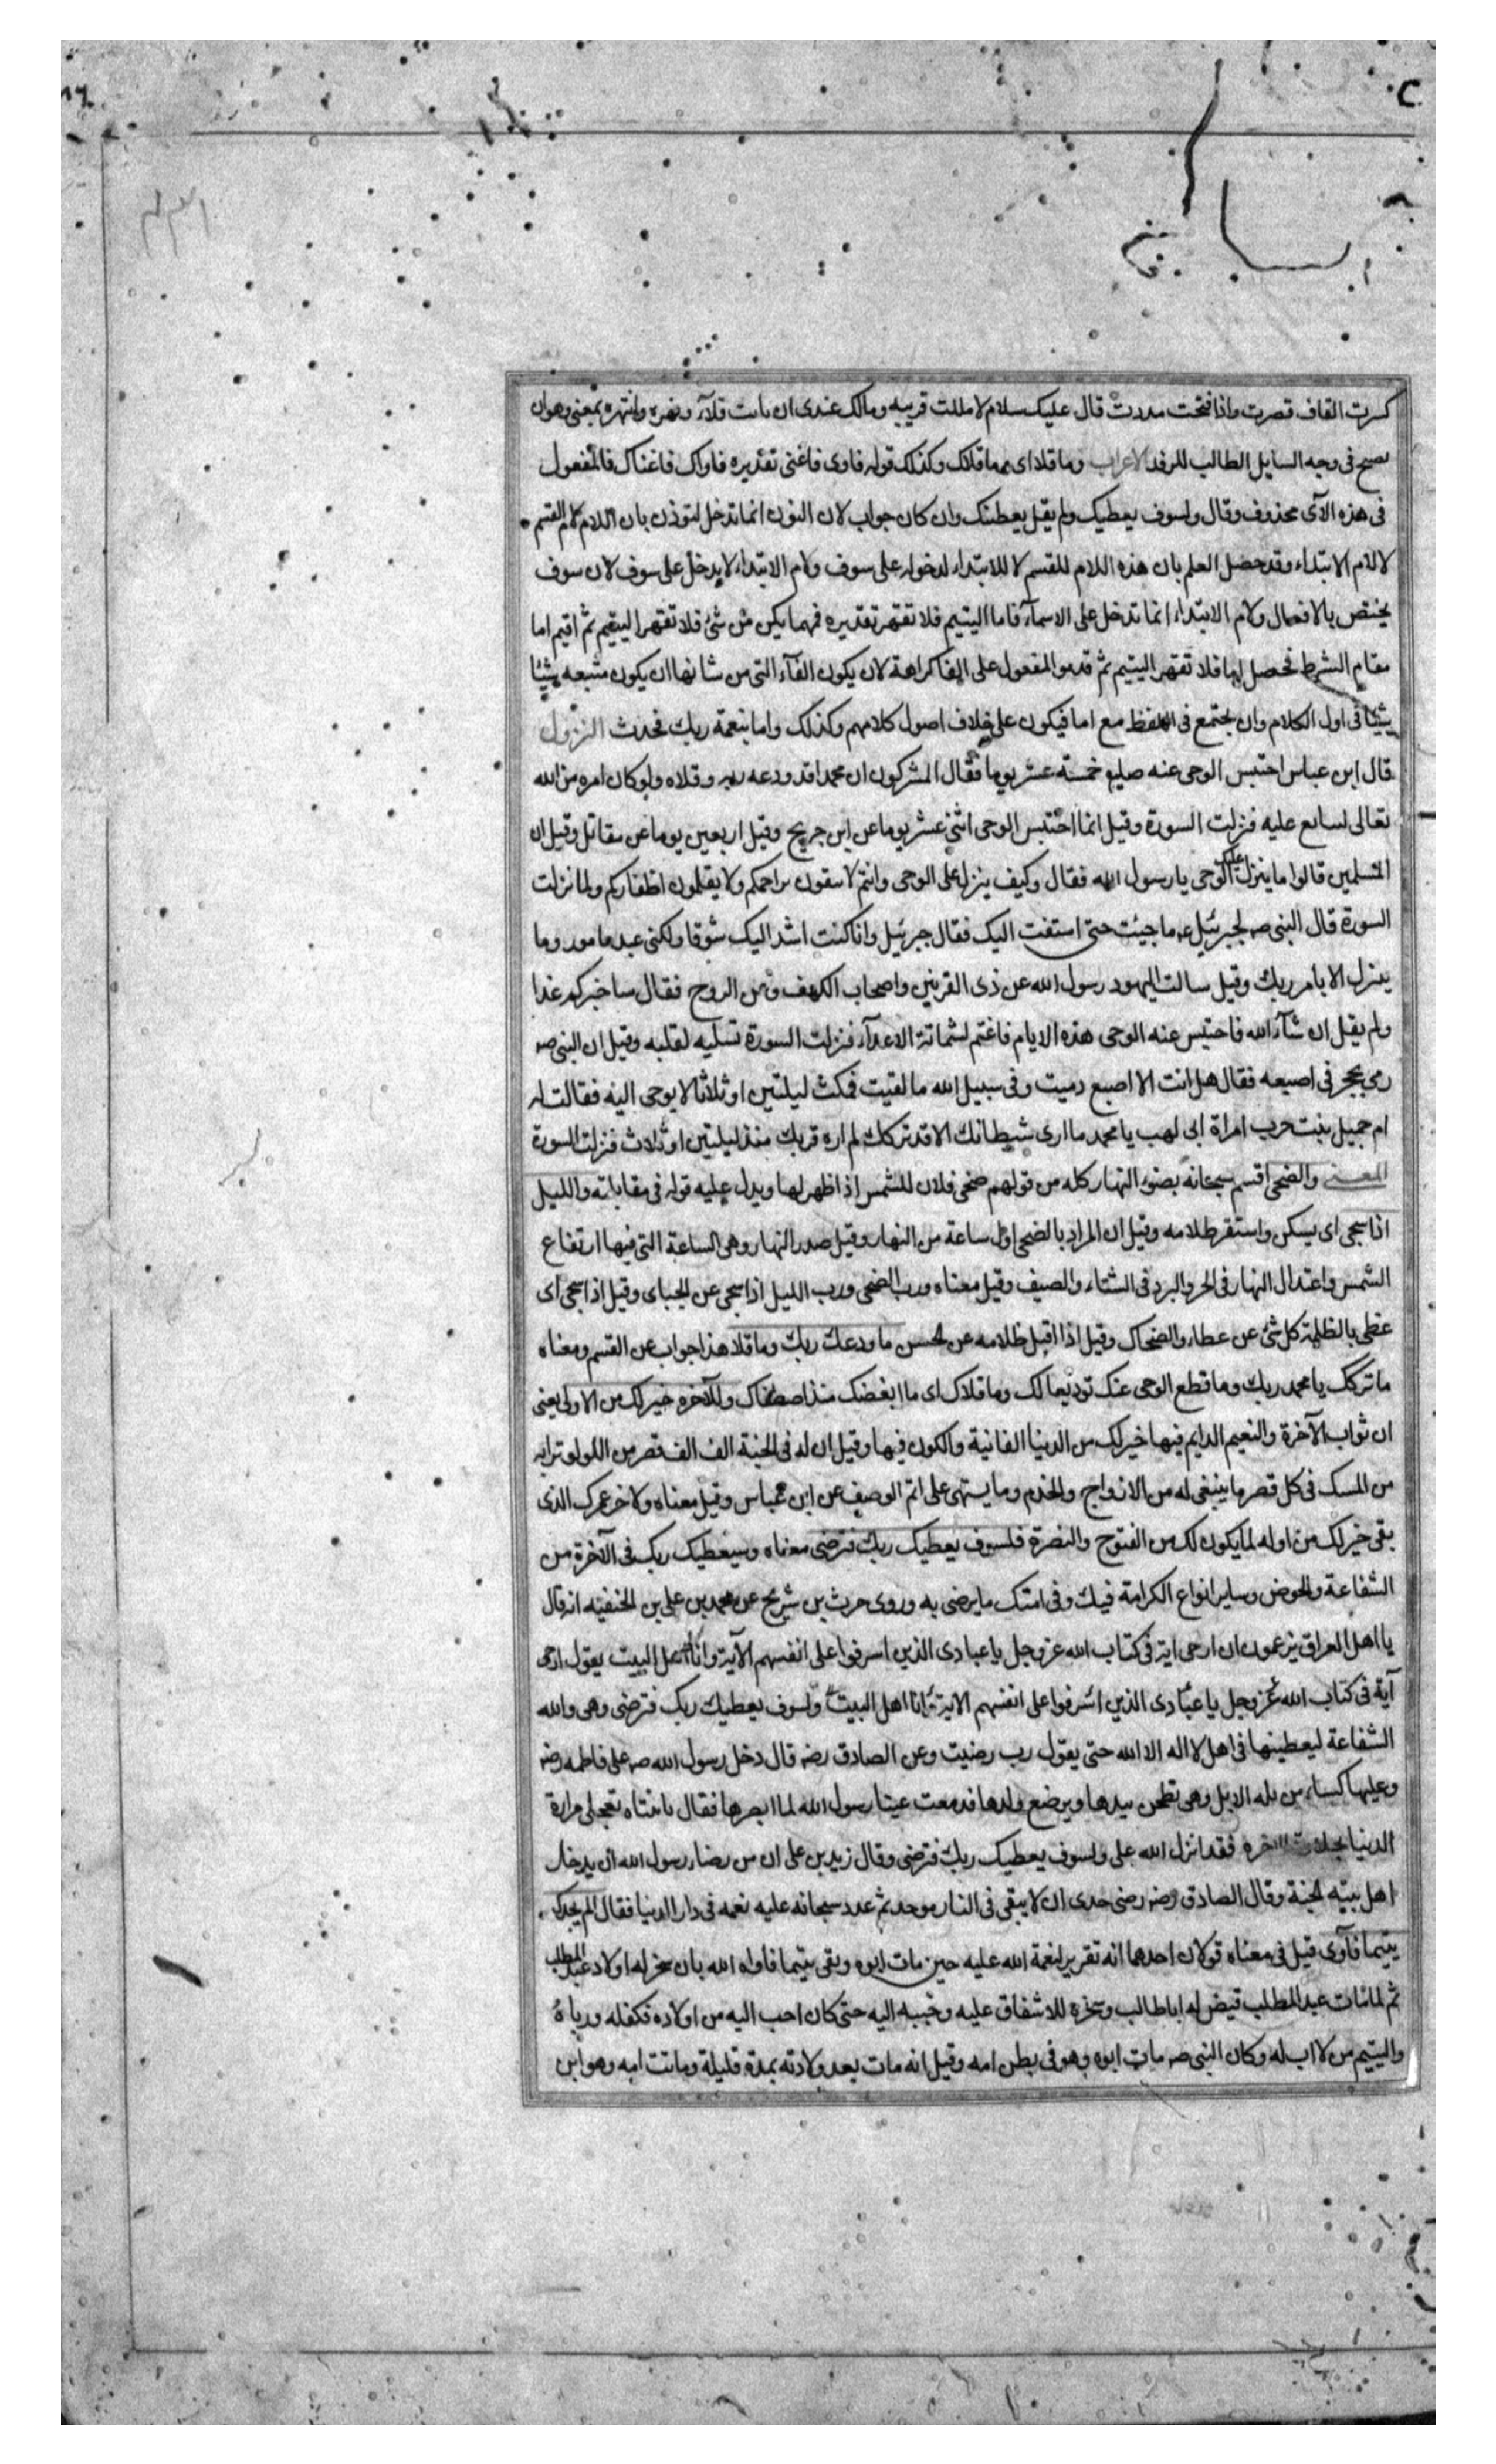 كسرت القاف قصرت واذا فتحت مددت قال عليك سلام لا مللت قريبه ومالك عندى ان نات قلآء ونهره وانتهره بمعنى وهو ان
يصح فى وجه السايل الطالب للرفد الاعراب وما قلا اى وما قلاك وكذلك قوله فاوى فاغنى تقديره فاواك فاغناك فالمفعول
فى هذه الآى محذوف وقال ولسوف يعطيك ولم يقل يعطينك وان كان جواب لان النون انما تدخل لتوذن بان اللام لام القسم
لا لام الابتداء وقد حصل العلم بان هذه اللام للقسم لا للابتداء لدخوله على سوف ولام الابتداء لا يدخل على سوف لان سوف
يختص بالافعال ولام الابتداء انما تدخل على الاسمآء فاما اليتيم فلا تقهر تقديره فهما يكن من شئ فلا تقهر اليتيم ثم اقيم اما
مقام الشرط فحصل اما فلا تقهر اليتيم ثم قدموا المفعول على الفا كراهة لان يكون الفآء التى من شانها ان يكون متبعه شيئا
شيئا فى اول الكلام وان يجتمع فى اللفظ مع اما فيكون على خلاف اصول كلامهم وكذلك واما بنعمة ربك فحدث النزول
قال ابن عباس احتبس الوحى عنه صلم خمسة عشر يوما فقال المشركون ان محمدا قد ودعه ربه وقلاه ولو كان امره من الله
تعالى لتتابع عليه فنزلت السورة وقيل انما احتبس الوحى اثنى عشر يوما عن ابن جريج وقيل اربعين يوما عن مقاتل وقيل ان
المسلمين قالوا ما ينزل عليك الوحى يا رسول الله فقال وكيف ينزل على الوحى وانتم لا تنقون براجمكم ولا يقلمون اظفاركم ولما نزلت
السورة قال النبى صه لجبرئيل عه ما جيئت حتى اشتقت اليك فقال جبرئيل وانا كنت اشد اليك شوقا ولكنى عبد مامور وما
ينزل الا بامر ربك وقيل سالت اليهود رسول الله عن ذى القرنين واصحاب الكهف وعن الروح فقال ساخبركم غدا
ولم يقل ان شآء الله فاحتبس عنه الوحى هذه الايام فاغتم لشماتة الاعدآء فنزلت السورة تسليه لقلبه وقيل ان النبى صه
رمى بحجر فى اصبعه فقال هل انت الا اصبع دميت وفى سبيل الله ما لقيت فمكث ليلتين او ثلاثا لا يوحى اليه فقالت له
ام جميل بنت حرب امراة ابى لهب يا محمد ما ارى شيطانك الا قد تركك لم اره قربك منذ ليلتين او ثلاث فنزلت السورة
المعنى والضحى اقسم سبحانه بضوء النهار كله من قولهم ضحى فلان للشمس اذا ظهر لها ويدل عليه قوله فى مقابلته والليل
اذا سجى اى يسكن واستقر ظلامه وقيل ان المراد بالضحى اول ساعة من النهار وقيل صدر النهار وهى الساعة التى فيها ارتفاع
الشمس واعتدال النهار فى الحر والبرد فى الشتاء والصيف وقيل معناه ورب الضحى ورب الليل اذا سجى عن الجباى وقيل اذا سجى اى
غطى بالظلمة كل شئ عن عطاء والضحاك وقيل اذا اقبل ظلامه عن الحسن ما ودعك ربك وما قلا هذا جواب عن القسم ومعناه
ما تركك يا محمد ربك وما قطع الوحى عنك توديعا لك وما قلاك اى ما ابغضك منذ اصطفاك وللآخره خير لك من الاولى يعنى
ان ثواب الآخرة والنعيم الدايم فيها خير لك من الدنيا الفانية والكون فيها وقيل ان له فى الجنة الف الف قصر من اللولو ترابه
من المسك فى كل قصر ما ينبغى له من الازواج والخدم وما يشتهى على اتم الوصف عن ابن عباس وقيل معناه ولاخر عمرك الذى
بقى خير لك من اوله لما يكون لك من الفتوح والنصرة فلسوف يعطيك ربك فترضى معناه وسيعطيك ربك فى الآخرة من
الشفاعة والحوض وساير انواع الكرامة فيك وفى امتك ما يرضى به وروى حرث بن شريح عن محمد بن على بن الحنفيه انه قال
يا اهل العراق تزعمون ان ارجى اية فى كتاب الله عز وجل يا عبادى الذين اسرفوا على انفسهم الآية وانا اهل البيت يقول ارجى
آية فى كتاب الله عز وجل يا عبادى الذين اسرفوا على انفسهم الاية انا اهل البيت ولسوف يعطيك ربك فترضى وهى والله
الشفاعة ليعطينها فى اهل لا اله الا الله حتى يقول رب رضيت وعن الصادق رضه قال دخل رسول الله صه على فاطمه رضه
وعليها كساء من ثله الابل وهى تطحن بيدها ويرضع ولدها فدمعت عينا رسول الله لما ابصرها فقال يا بنتاه تعجلى مرارة
الدنيا بحلاوة الاخره فقد انزل الله على ولسوف يعطيك ربك فترضى وقال زيد بن على ان من رضاء رسول الله ان يدخل
اهل بيته الجنة وقال الصادق رضه رضى جدى ان لا يبقى فى النار موحد ثم عدد سبحانه عليه نعمه فى دار الدنيا فقال الم يجدك
يتيما فآوى قيل فى معناه قولان احدهما انه تقرير لنعمة الله عليه حين مات ابوه وبقى يتيما فاواه الله بان سخر له اولا عبد المطلب
ثم لما مات عبد المطلب قيض له اباطالب وسخره للاشفاق عليه وحببه اليه حتى كان احب اليه من اولاده فكفله ورباه
واليتيم من لا اب له وكان النبى صه مات ابوه وهو فى بطن امه وقيل انه مات بعد ولادته بمدة قليلة وماتت امه وهو ابن